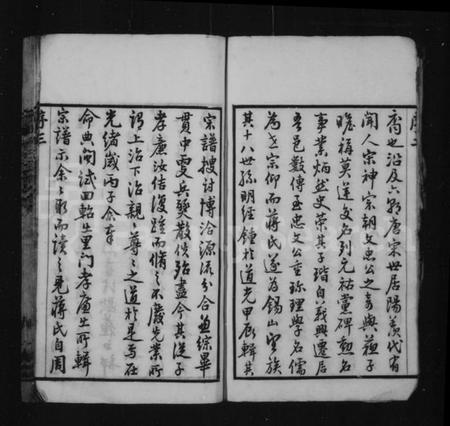 序二
裔也沿及六朝唐宋世居陽羨代有
聞人宗神宗朝文忠公之奇與蘇子
瞻稱莫逆交名列元祐黨碑勳名
事業炳然史策其子瑎自宜興遷居
吾邑數傳至忠文公重珍理學名儒
為世宗仰而蔣氏遂為錫山望族
其十八世孫明經鍾於道光甲辰輯其
宗譜搜討博洽源流分合兼綜畢
貫中更兵燹散佚殆盡今其從子
孝廉汝佶復踵而脩之不廢先業所
謂上治下治親親尊尊之道於是乎在
光緒歲丙子余奉
命典閩試回軺生里門孝廉生所輯
宗譜示余余取而讀之見蔣氏自周
序三